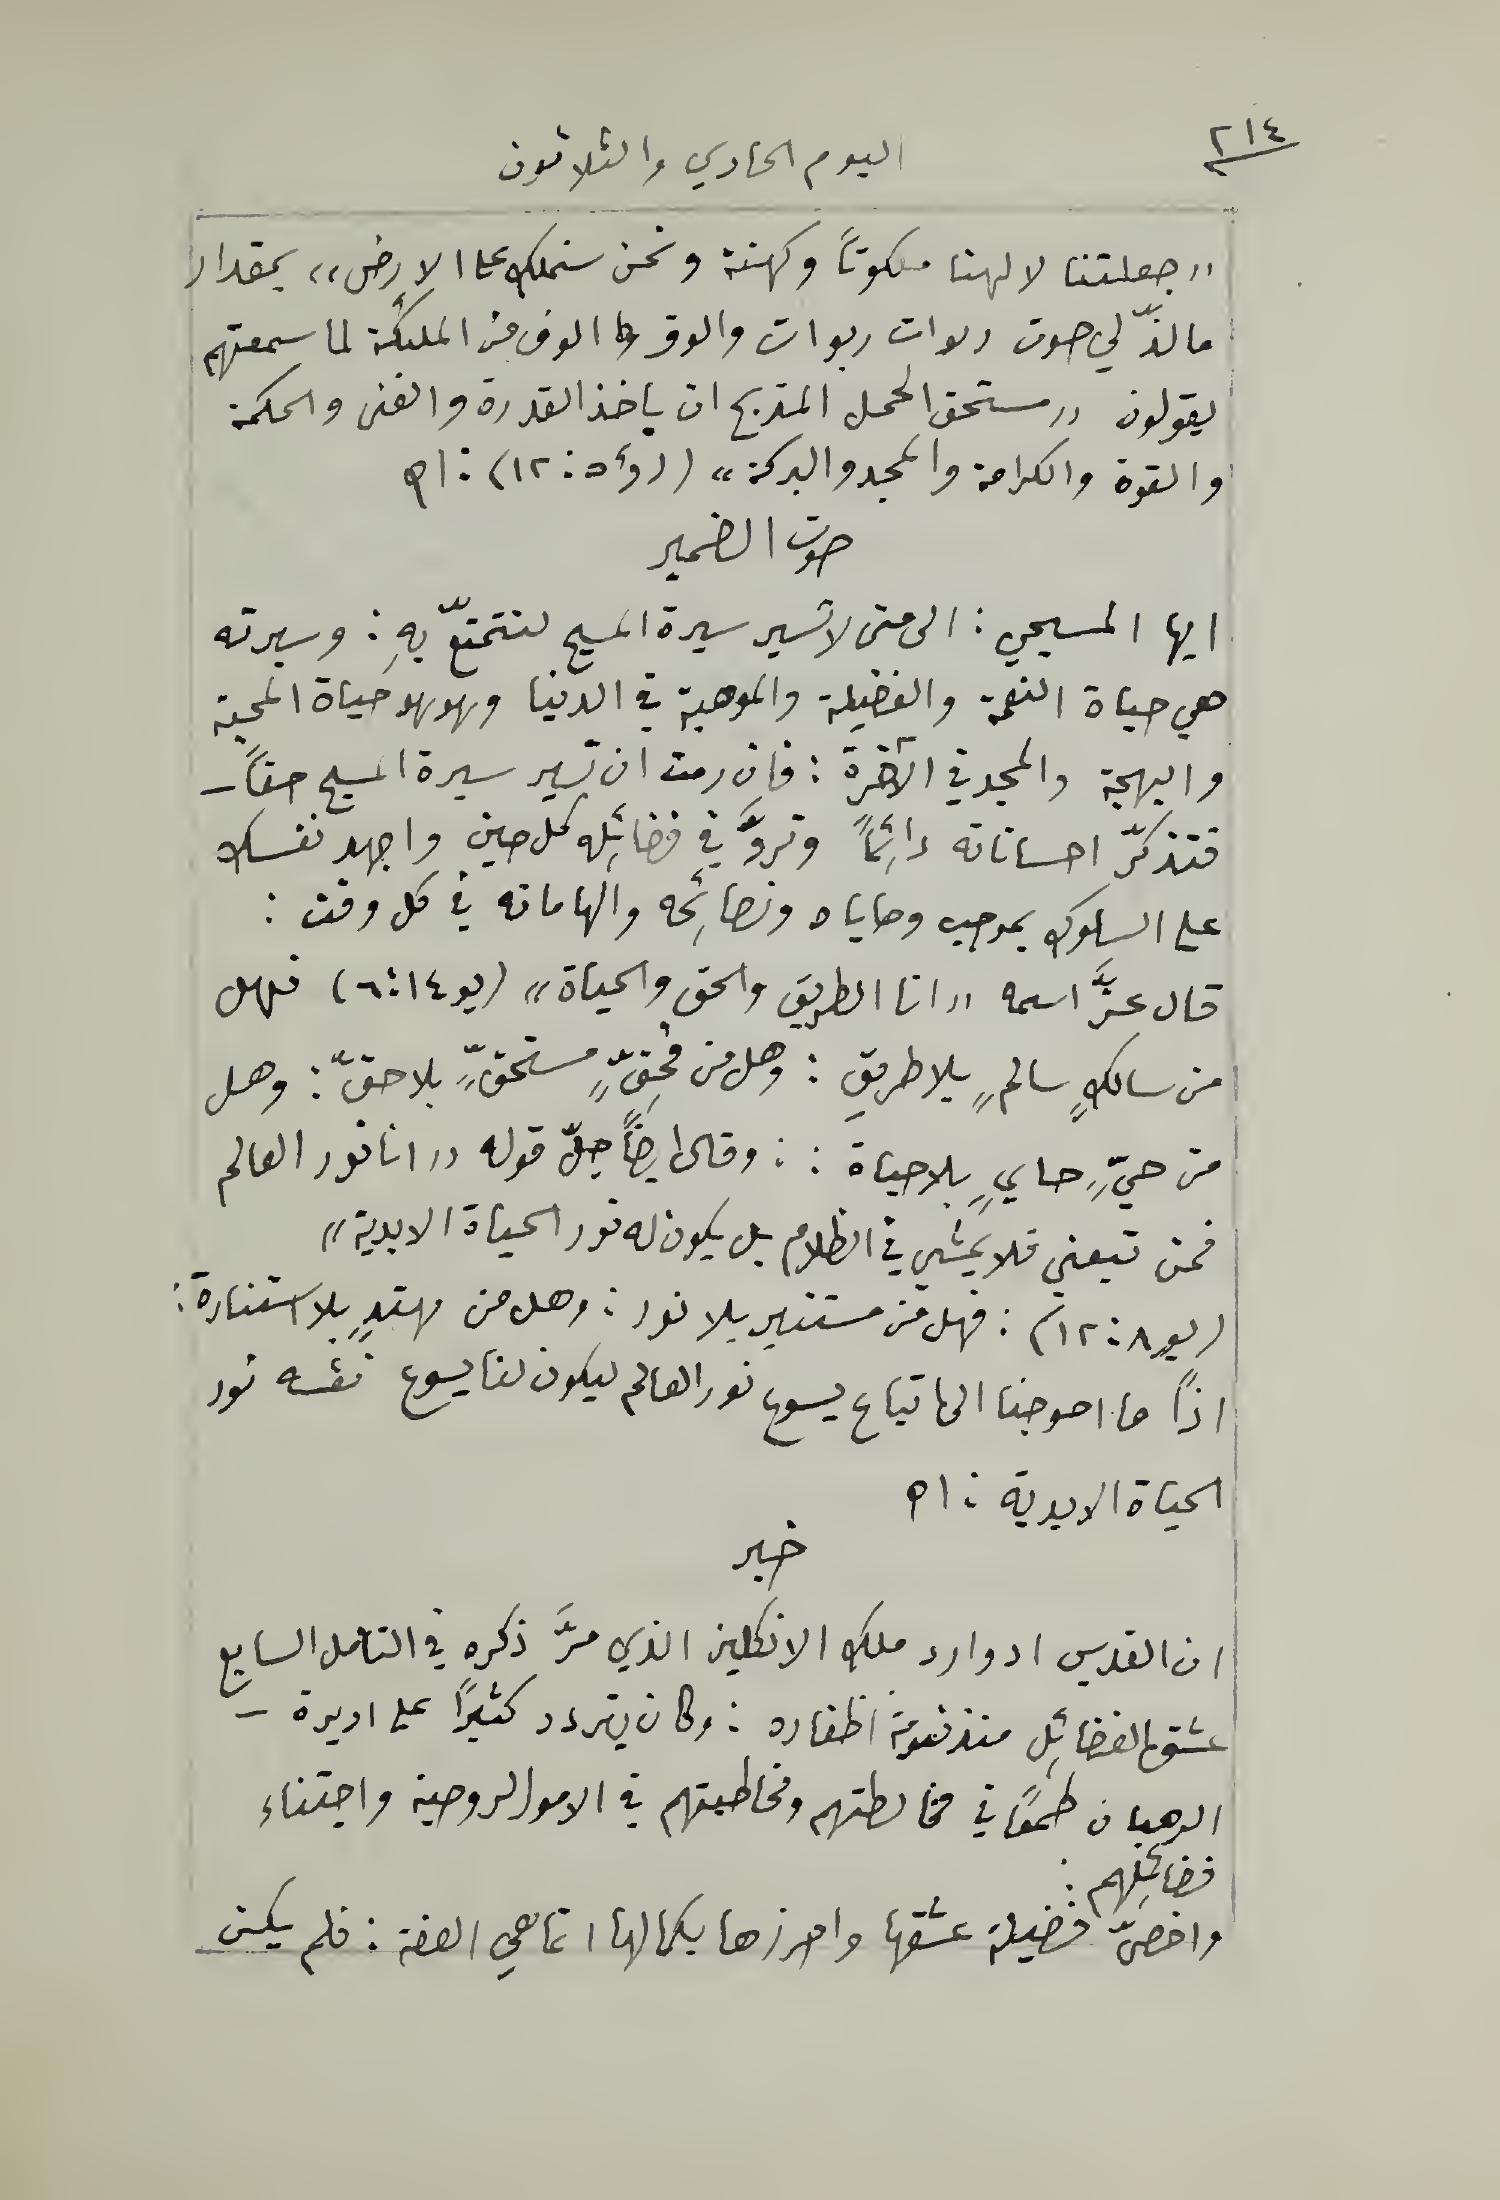 ٢١٤
اليوم الحادي والثلاثون
«جعلتنا لالهنا ملكوتاً وكهنة ونحن سنملك على الارض» بمقدار
مالذّ لي صوت ربوات ربوات والوف الوف من الملئكة لما سمعتهم
يقولون «مستحق الحمل المذبح ان ياخذ القدرة والغنى والحكمة
والقوة والكرامة والمجد والبركة» (رؤ٥: ١٢) : اه
صوت الضمير
ايها المسيحي : الى متى لا تسير سيرة المسيح لتتمتعّ بهِ : وسيرته
هي حياة النعمة والفضيلة والموهبة في الدنيا وهو هو حياة المحبة
والبهجة والمجد في الآخرة : فان رمت ان تسير سيرة المسيح حقاً –
فتذكرّ احساناته دائماً وتروَّ في فضائِله كل حين واجهد نفسك
على السلوك بموجب وصاياه ونصائِحه والهاماته في كل وقت :
قال عزَّ اسمه «انا الطريق والحق والحياة» (يو١٤: ٦) فهل
من سالكٍ سالمٍ بلا طريقِ : وهل من مُحِقٍّ مستحقٍّ بلا حقّ : وهل
من حيٍّ حايٍ بلا حياة : : وقال ايضاً جلّ قوله «انا نور العالم
فمن تبعني فلا يمشي في الظلام بل يكون له نور الحياة الابدية»
(يو٨: ١٢) : فهل من مستنير بلا نور : وهل من مهتدٍ بلا استنارة :
اذاً ما احوجنا الى اتباع يسوع نور العالم ليكون لنا يسوع نفسه نور
الحياة الابدية : اه
خبر
ان القديس ادوارد ملك الانكليز الذي مرَّ ذكره في التامل السابع
عشق الفضائِل منذ نعومة اظفاره : وكان يتردد كثيرًا على اديرة –
الرهبان طمعًا في مخالطتهم ومخاطبتهم في الامور الروحية واجتناء
فضائِلهم :
واخصّ فضيلة عشقها واحرزها بكمالها انما هي العفة : فلم يكن